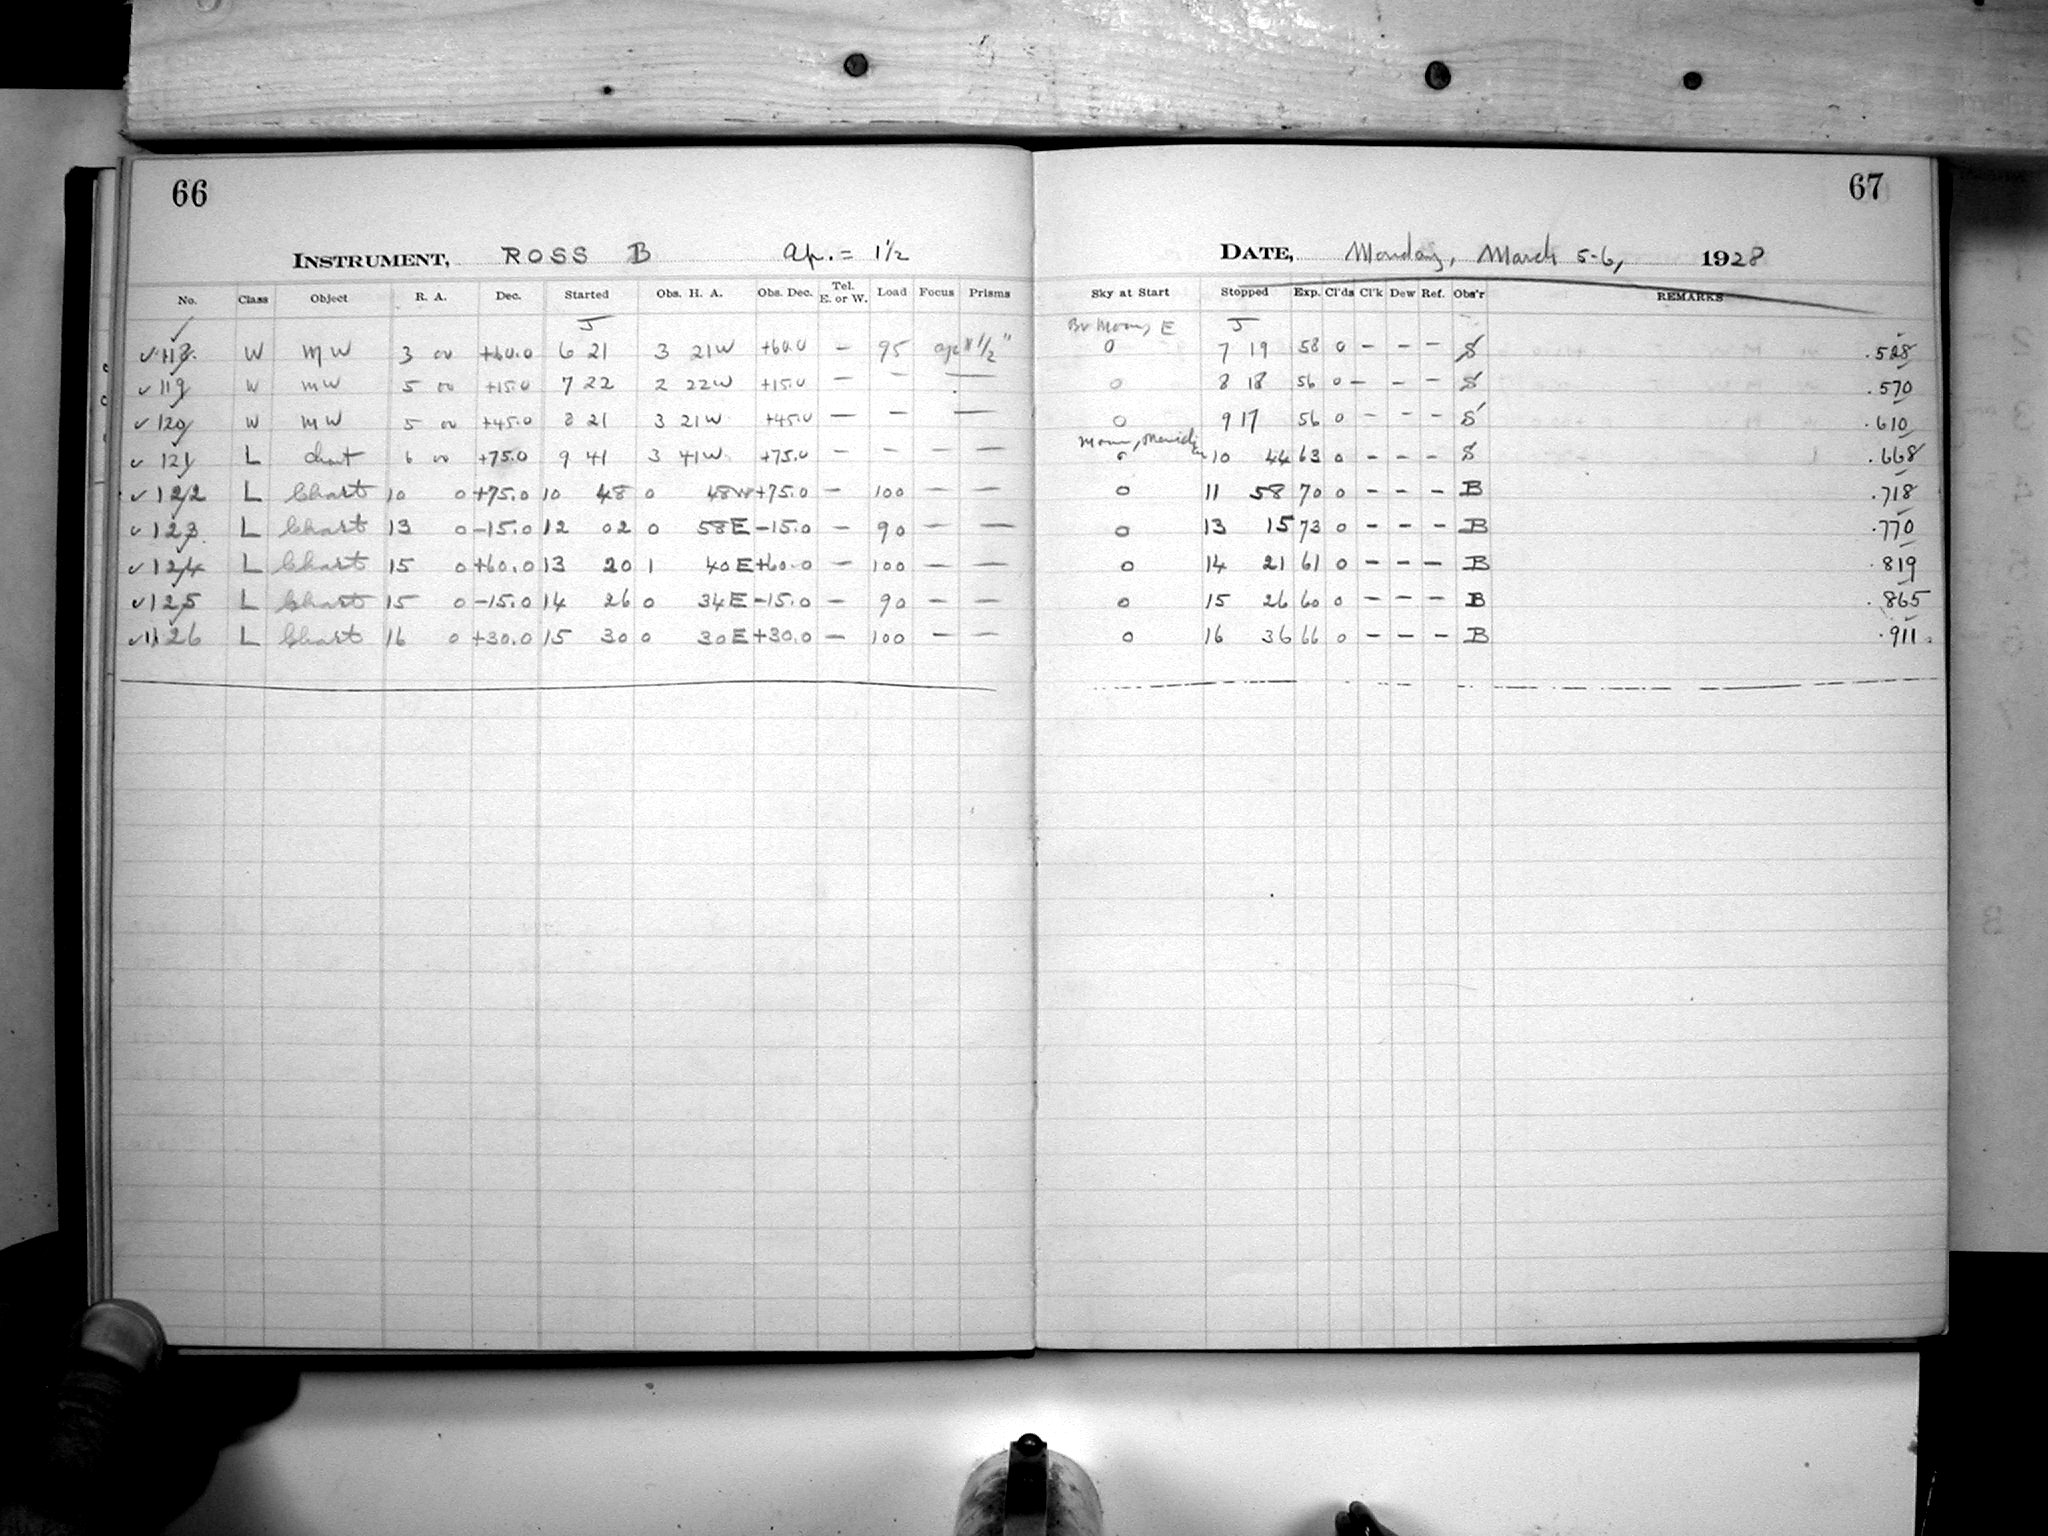 66
INSTRUMENT, ROSS B Ap. = 1½
No. Class Object R. A. Dec. Started Obs. H. A. Obs. Dec. Tel. E. or W. Load Focus Prisms
J
✓ 118 W MW 3 00 +60.0 6 21 3 21W +60.0 — 95 ap 1½"
✓ 119 W MW 5 00 +15.0 7 22 2 22W +15.0 — — —
✓ 120 W MW 5 00 +45.0 8 21 3 21W +45.0 — — —
✓ 121 L Chart 6 00 +75.0 9 41 3 41W +75.0 — — — —
✓ 122 L Chart 10 0 +75.0 10 48 0 48W +75.0 — 100 — —
✓ 123 L Chart 13 0 -15.0 12 02 0 58E -15.0 — 90 — —
✓ 124 L Chart 15 0 +60.0 13 20 1 40E +60.0 — 100 — —
✓ 125 L Chart 15 0 -15.0 14 26 0 34E -15.0 — 90 — —
✓ 126 L Chart 16 0 +30.0 15 30 0 30E +30.0 — 100 — —
67
DATE, Monday, March 5-6, 1928
Sky at Start Stopped Exp. Cl'ds Cl'k Dew Ref. Obs'r REMARKS
Br Moon, E J
0 7 19 58 0 — — — S .528
0 8 18 56 0 — — — S .570
0 9 17 56 0 — — — S .610
Moon,
0 10 44 63 0 — — — S .668
0 11 58 70 0 — — — B .718
0 13 15 73 0 — — — B .770
0 14 21 61 0 — — — B .819
0 15 26 60 0 — — — B .865
0 16 36 66 0 — — — B .911